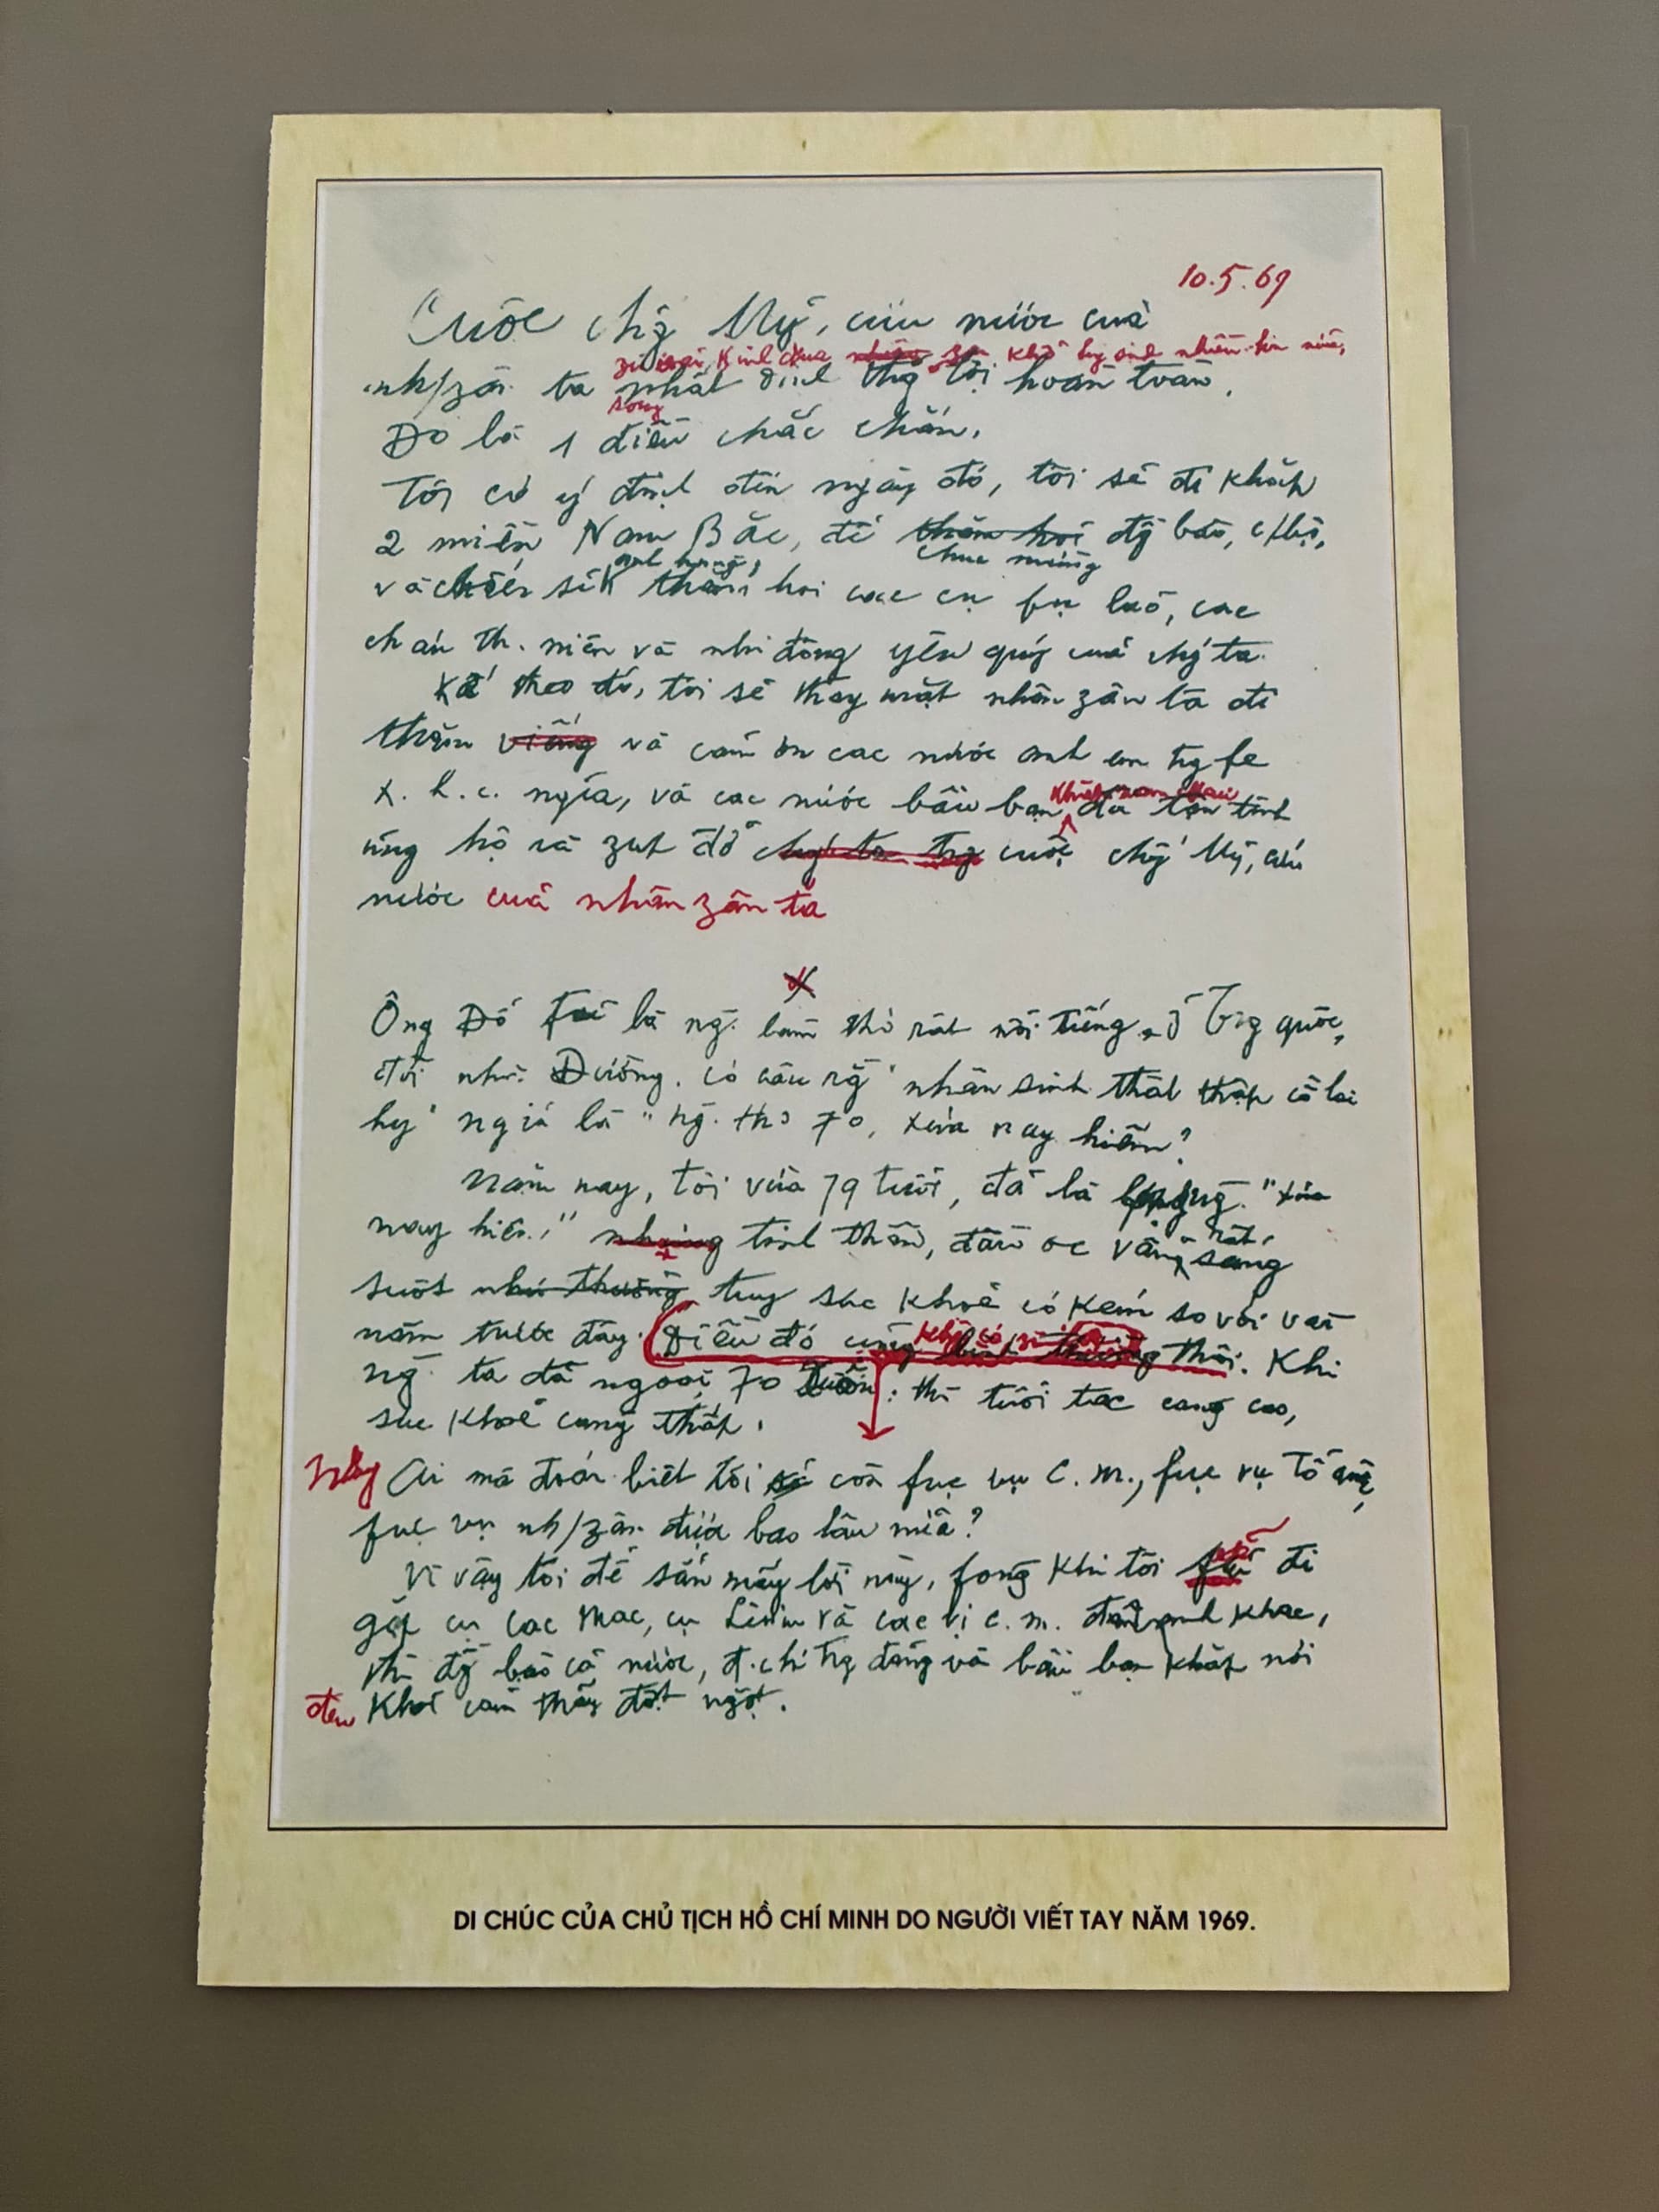 10.5.69
Cuộc chg Mỹ, cứu nước của
zù fải kinh qua zan khổ hy sinh nhiều hơn nữa,
nh/zân ta nhất định thg lợi hoàn toàn.
song
Đó là 1 điều chắc chắn.
Tôi có ý định đến ngày đó, tôi sẽ đi khắp
2 miền Nam Bắc, để thăm hỏi đồg bào, c/bộ,
anh hùng, chúc mừng
và chiến sĩ thăm hỏi các cụ fụ lão, các
cháu th. niên và nhi đồng yêu quý của chg ta.
Kế theo đó, tôi sẽ thay mặt nhân zân ta đi
thăm viếng và cảm ơn các nước anh em trg fe
x. h. c. ngĩa, và các nước bầu bạn đã tận tình
khắp năm châu
ủng hộ và zúp đỡ chg ta trg cuộc chg Mỹ, cứu
nước của nhân zân ta
x
Ông Đỗ Fủ là ng. làm thơ rất nổi tiếng ở Trg quốc,
đời nhà Đường. Có câu rằg "nhân sinh thất thập cổ lai
hy" ngĩa là "ng. thọ 70, xưa nay hiếm"
Năm nay, tôi vừa 79 tuổi, đã là lớp ng. "xưa
nay hiếm" nhưng tinh thần, đầu óc vẫn rất sáng
suốt như thường tuy sức khoẻ có kém so với vài
năm trước đây. Điều đó cũng bình thường thôi. Khi
khg có zì lạ
ng. ta đã ngoài 70 xuân, thì tuổi tác càng cao,
sức khoẻ càng thấp.
Nhưng Ai mà đoán biết tôi sẽ còn fục vụ C. m., fục vụ Tổ quốc,
fục vụ nh/zân được bao lâu nữa?
Vì vậy tôi để sẵn mấy lời này, fòng khi tôi sẽ đi
gặp cụ Các Mác, cụ Lênin và các vị c. m. đàn anh khác,
thì đồg bào cả nước, đ. chí trg đảng và bầu bạn khắp nơi
đều Khỏi cảm thấy đột ngột.
DI CHÚC CỦA CHỦ TỊCH HỒ CHÍ MINH DO NGƯỜI VIẾT TAY NĂM 1969.